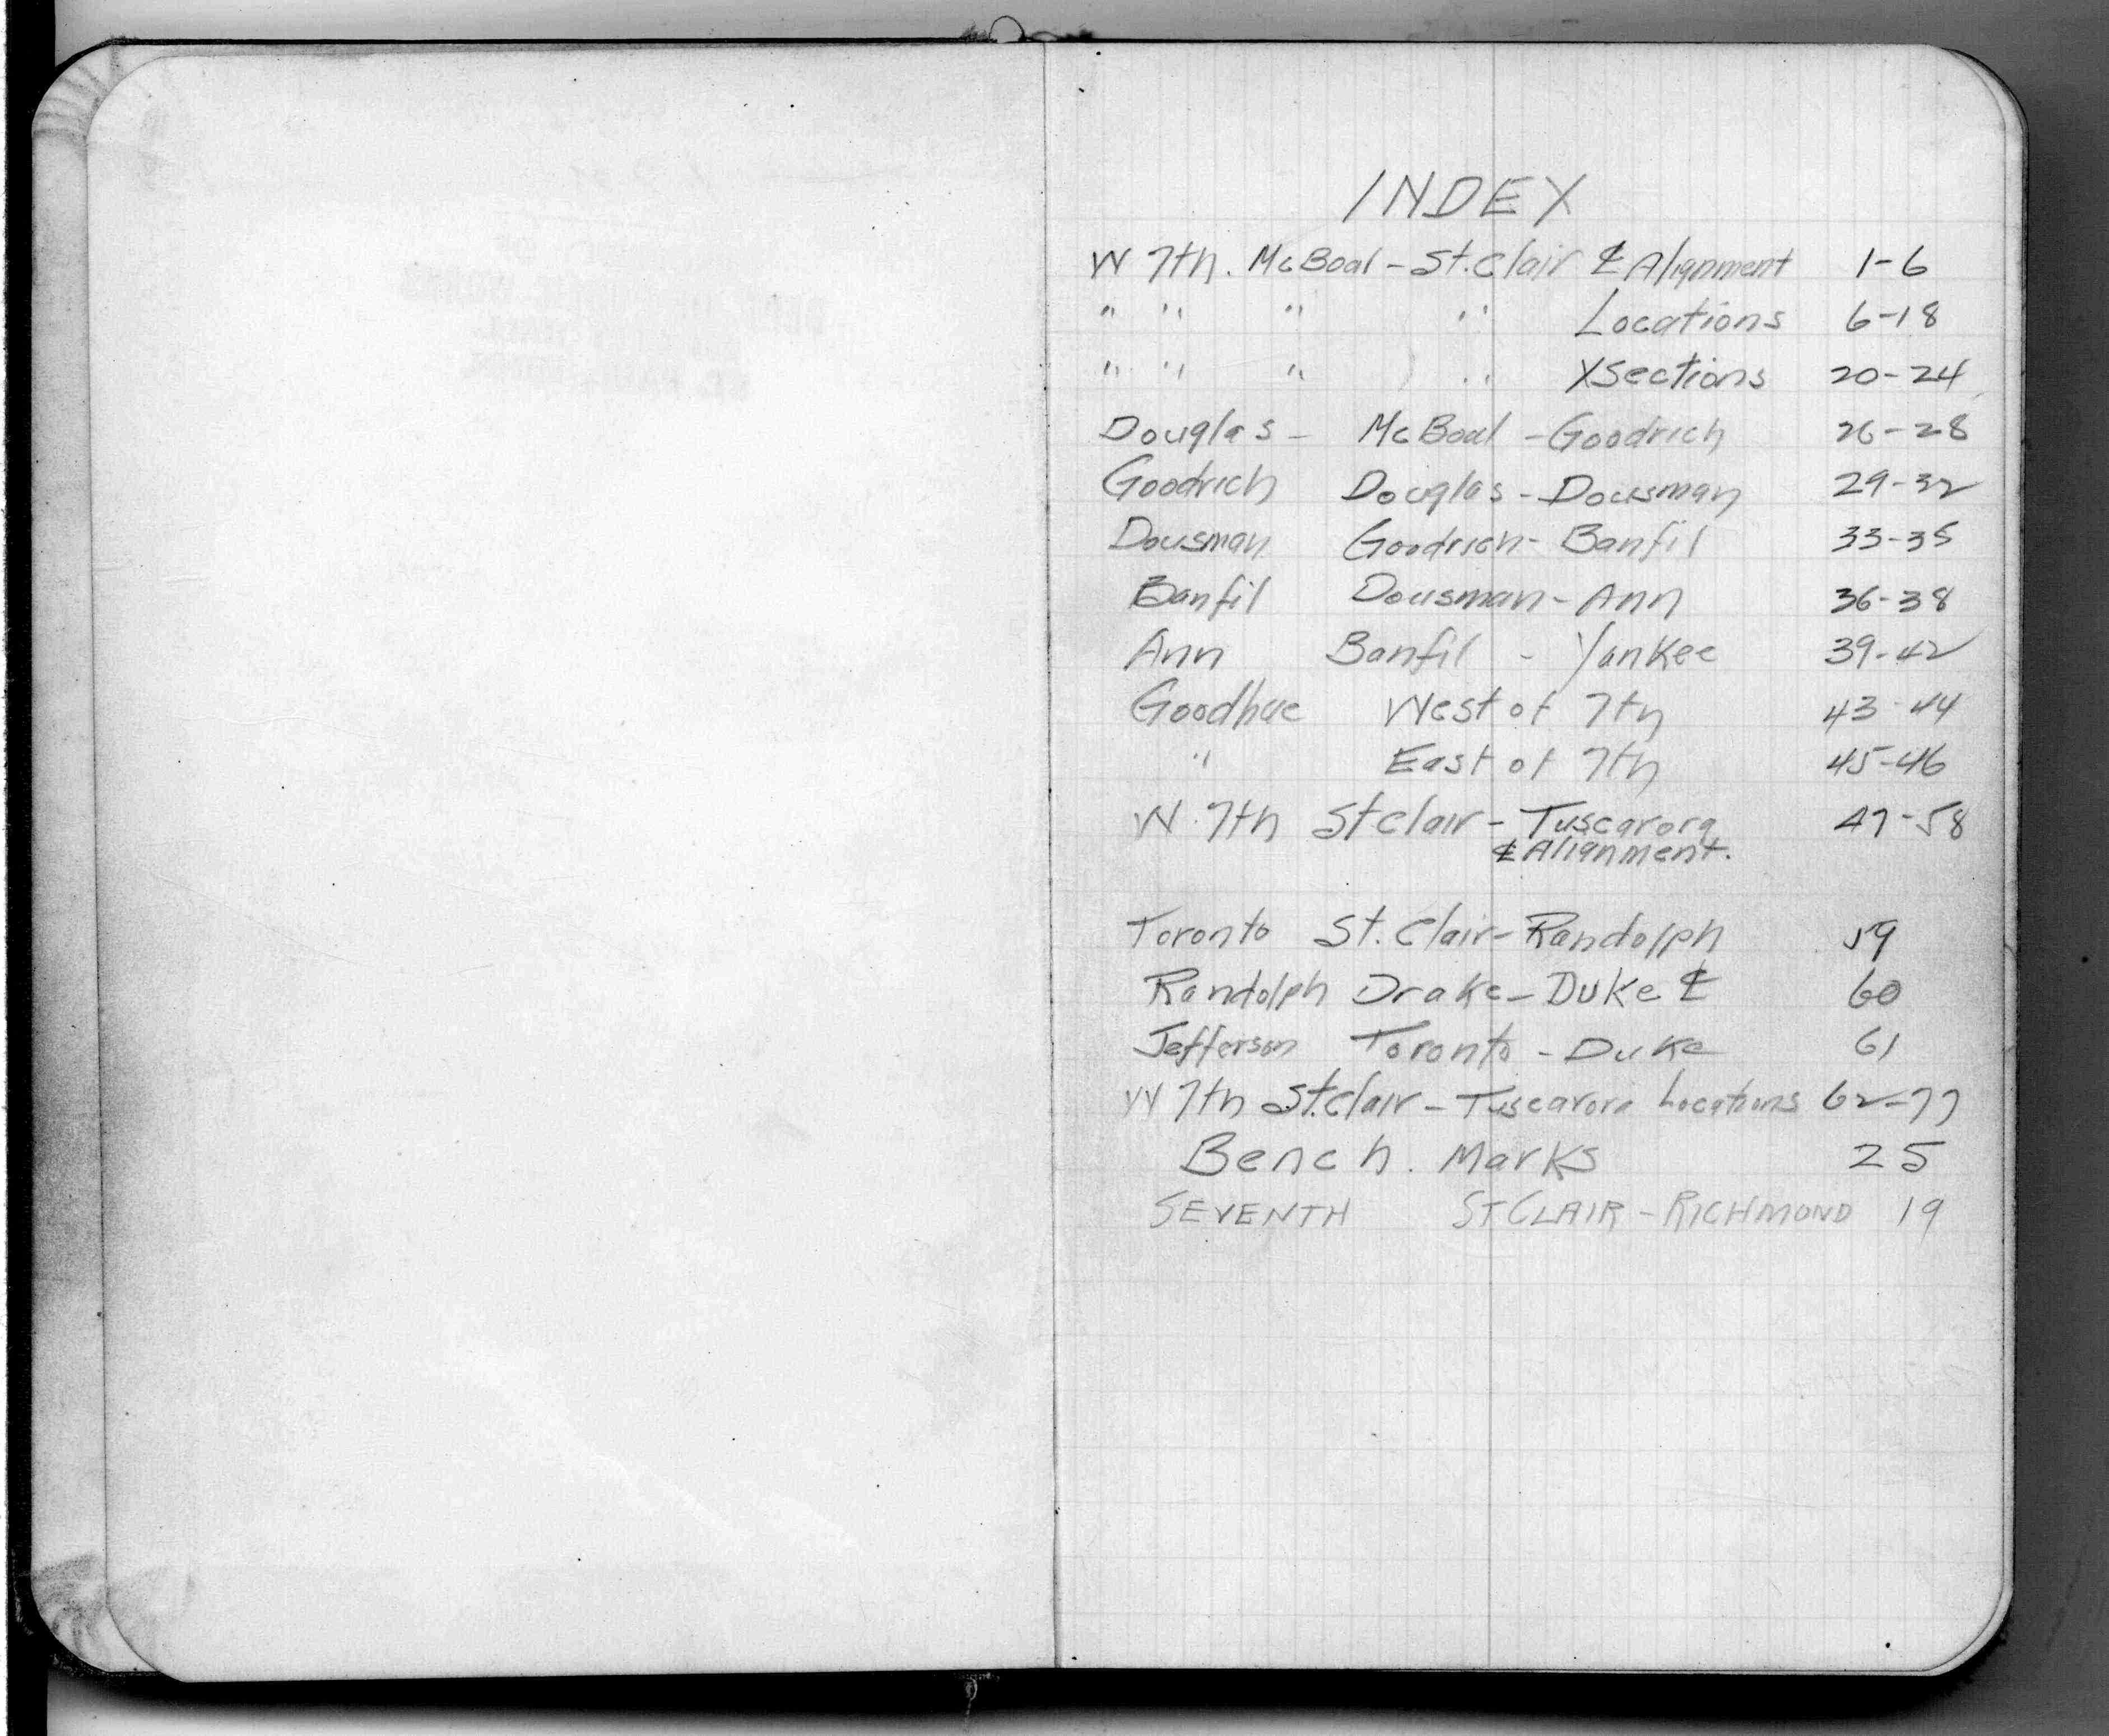 INDEX
W 7th. McBoal - St. Clair ℄ Alignment 1-6
" " " " Locations 6-18
" " " " XSections 20-24
Douglas - McBoal - Goodrich 26-28
Goodrich Douglas - Dousman 29-32
Dousman Goodrich - Banfil 33-35
Banfil Dousman - Ann 36-38
Ann Banfil - Yankee 39-42
Goodhue West of 7th 43-44
" East of 7th 45-46
W. 7th St Clair - Tuscarora 47-58
℄ Alignment.
Toronto St. Clair - Randolph 59
Randolph Drake - Duke ℄ 60
Jefferson Toronto - Duke 61
W 7th St. Clair - Tuscarora Locations 62-77
Bench. Marks 25
SEVENTH ST CLAIR - RICHMOND 19